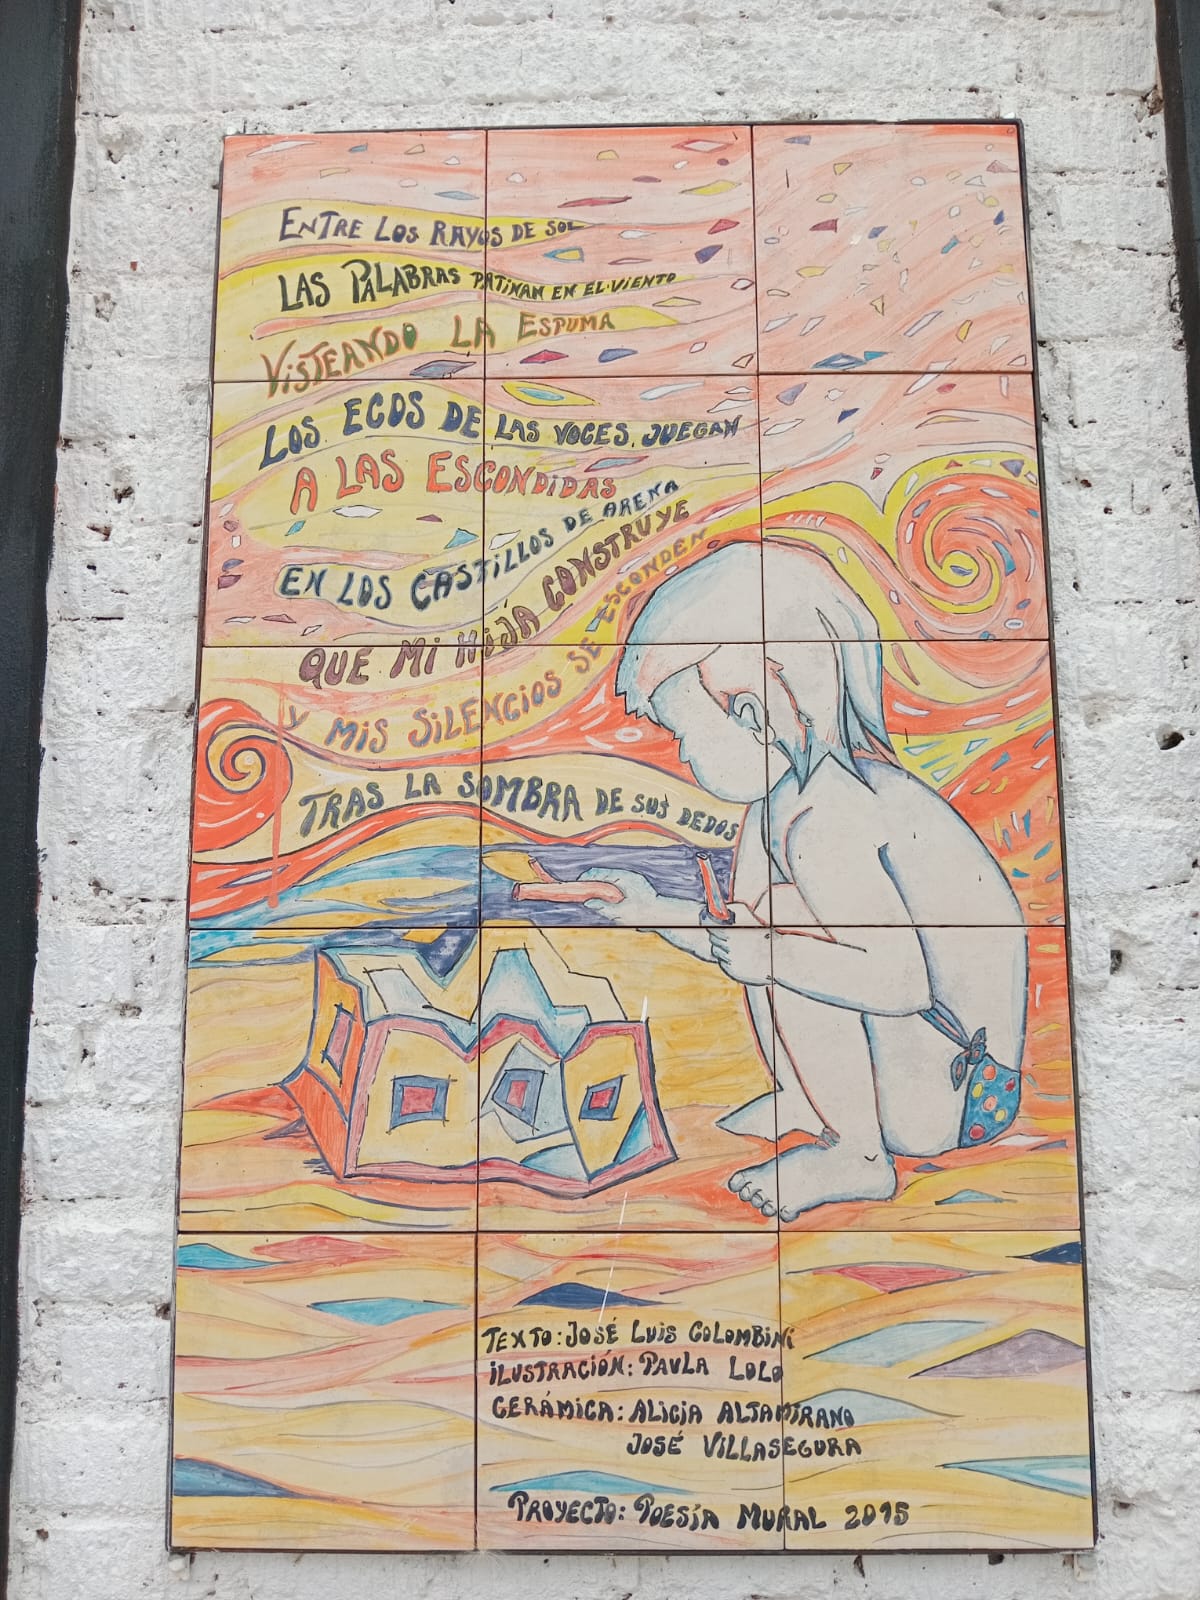 ENTRE LOS RAYOS DE SOL
LAS PALABRAS PATINAN EN EL VIENTO
VISTEANDO LA ESPUMA
LOS ECOS DE LAS VOCES, JUEGAN
A LAS ESCONDIDAS
EN LOS CASTILLOS DE ARENA
QUE MI HIJA CONSTRUYE
Y MIS SILENCIOS SE ESCONDEN
TRAS LA SOMBRA DE SUS DEDOS
TEXTO: JOSÉ LUIS COLOMBINI
ILUSTRACIÓN: PAULA LOLO
CERÁMICA: ALICIA ALTAMIRANO
JOSÉ VILLASEGURA
PROYECTO: POESÍA MURAL 2015